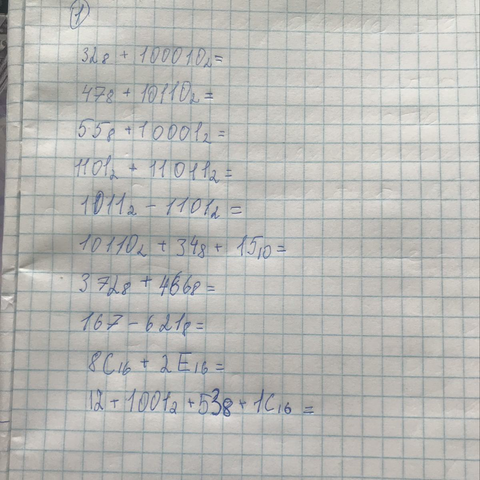 1
32₈ + 100010₂ =
47₈ + 10110₂ =
55₈ + 10001₂ =
1101₂ + 11011₂ =
1011₂ - 1101₂ =
10110₂ + 34₈ + 15₁₀ =
372₈ + 466₈ =
167 - 621₈ =
8C₁₆ + 2E₁₆ =
12 + 1001₂ + 53₈ + 1C₁₆ =